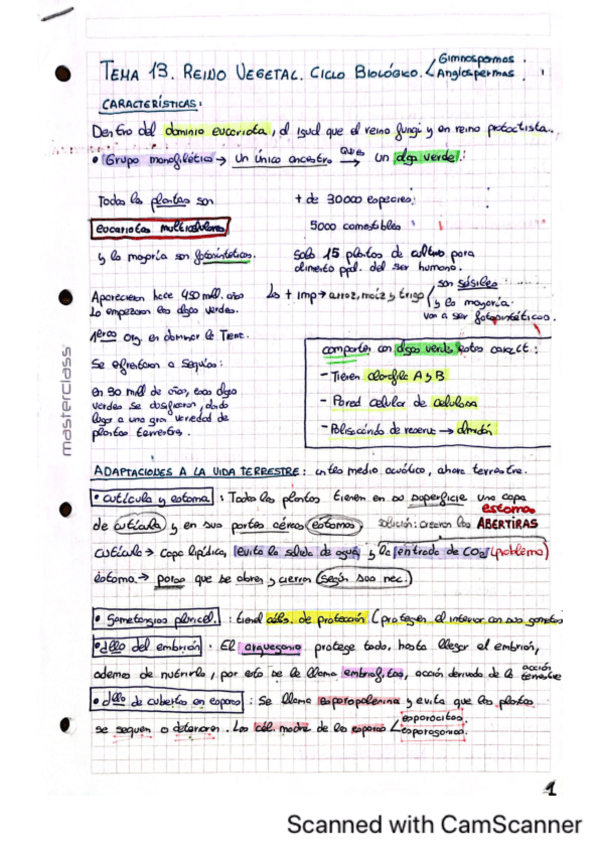 TEMA 13. REINO VEGETAL. CICLO BIOLÓGICO. Gimnospermas. Angiospermas.
CARACTERÍSTICAS:
Dentro del dominio eucariota, al igual que el reino fungi y en reino protoctista.
• Grupo monofilético → un único ancestro QUE → un alga verde.
Todas las plantas son
eucariotas multicelulares
y la mayoría son fotosintéticas.
Aparecieron hace 450 mill. años
Lo empezaron las algas verdes.
1eros org en dominar la Tierr.
Se afrentaron a sequías:
en 90 mill de años, esas algas
verdes se dosificaron, dando
lugar a una gran variedad de
plantas terrestres.
+ de 30000 especies;
5000 comestibles
Solo 15 plantas de cultivo para
alimento ppal. del ser humano.
Ls + imp → arroz, maíz y trigo
son sésiles
y la mayoría
van a ser fotosintéticos.
comparten con algas verdes estas caract:
- Tienen clorofila A y B
- Pared celular de celulosa
- Polisacárido de reserva → almidón
ADAPTACIONES A LA VIDA TERRESTRE: antes medio acuático, ahora terrestre.
• cutícula y estoma: Todas las plantas tienen en su superficie una capa
de cutícula y en sus partes aéreas estomas solución: crearon las ABERTURAS estomas
cutícula → capa lipídica, evita la salida de agua y la entrada de CO2 (problema)
estoma → poros que se abren y cierran según sus nec.
• Gametangios pluricel.: tienen céls. de protección (protegen el interior con sus gametos
• dllo del embrión. El arquegonio protege todo, hasta llegar al embrión,
además de nutrirlo, por esto se le llama embriofitas, acción derivada de la acción terrestre
• dllo de cubierta en espora: Se llama esporopolenina y evita que las plantas
se sequen o deterioren. Las cél. madre de las esporas esporocitos esporogonios.
masterclass
1
Scanned with CamScanner